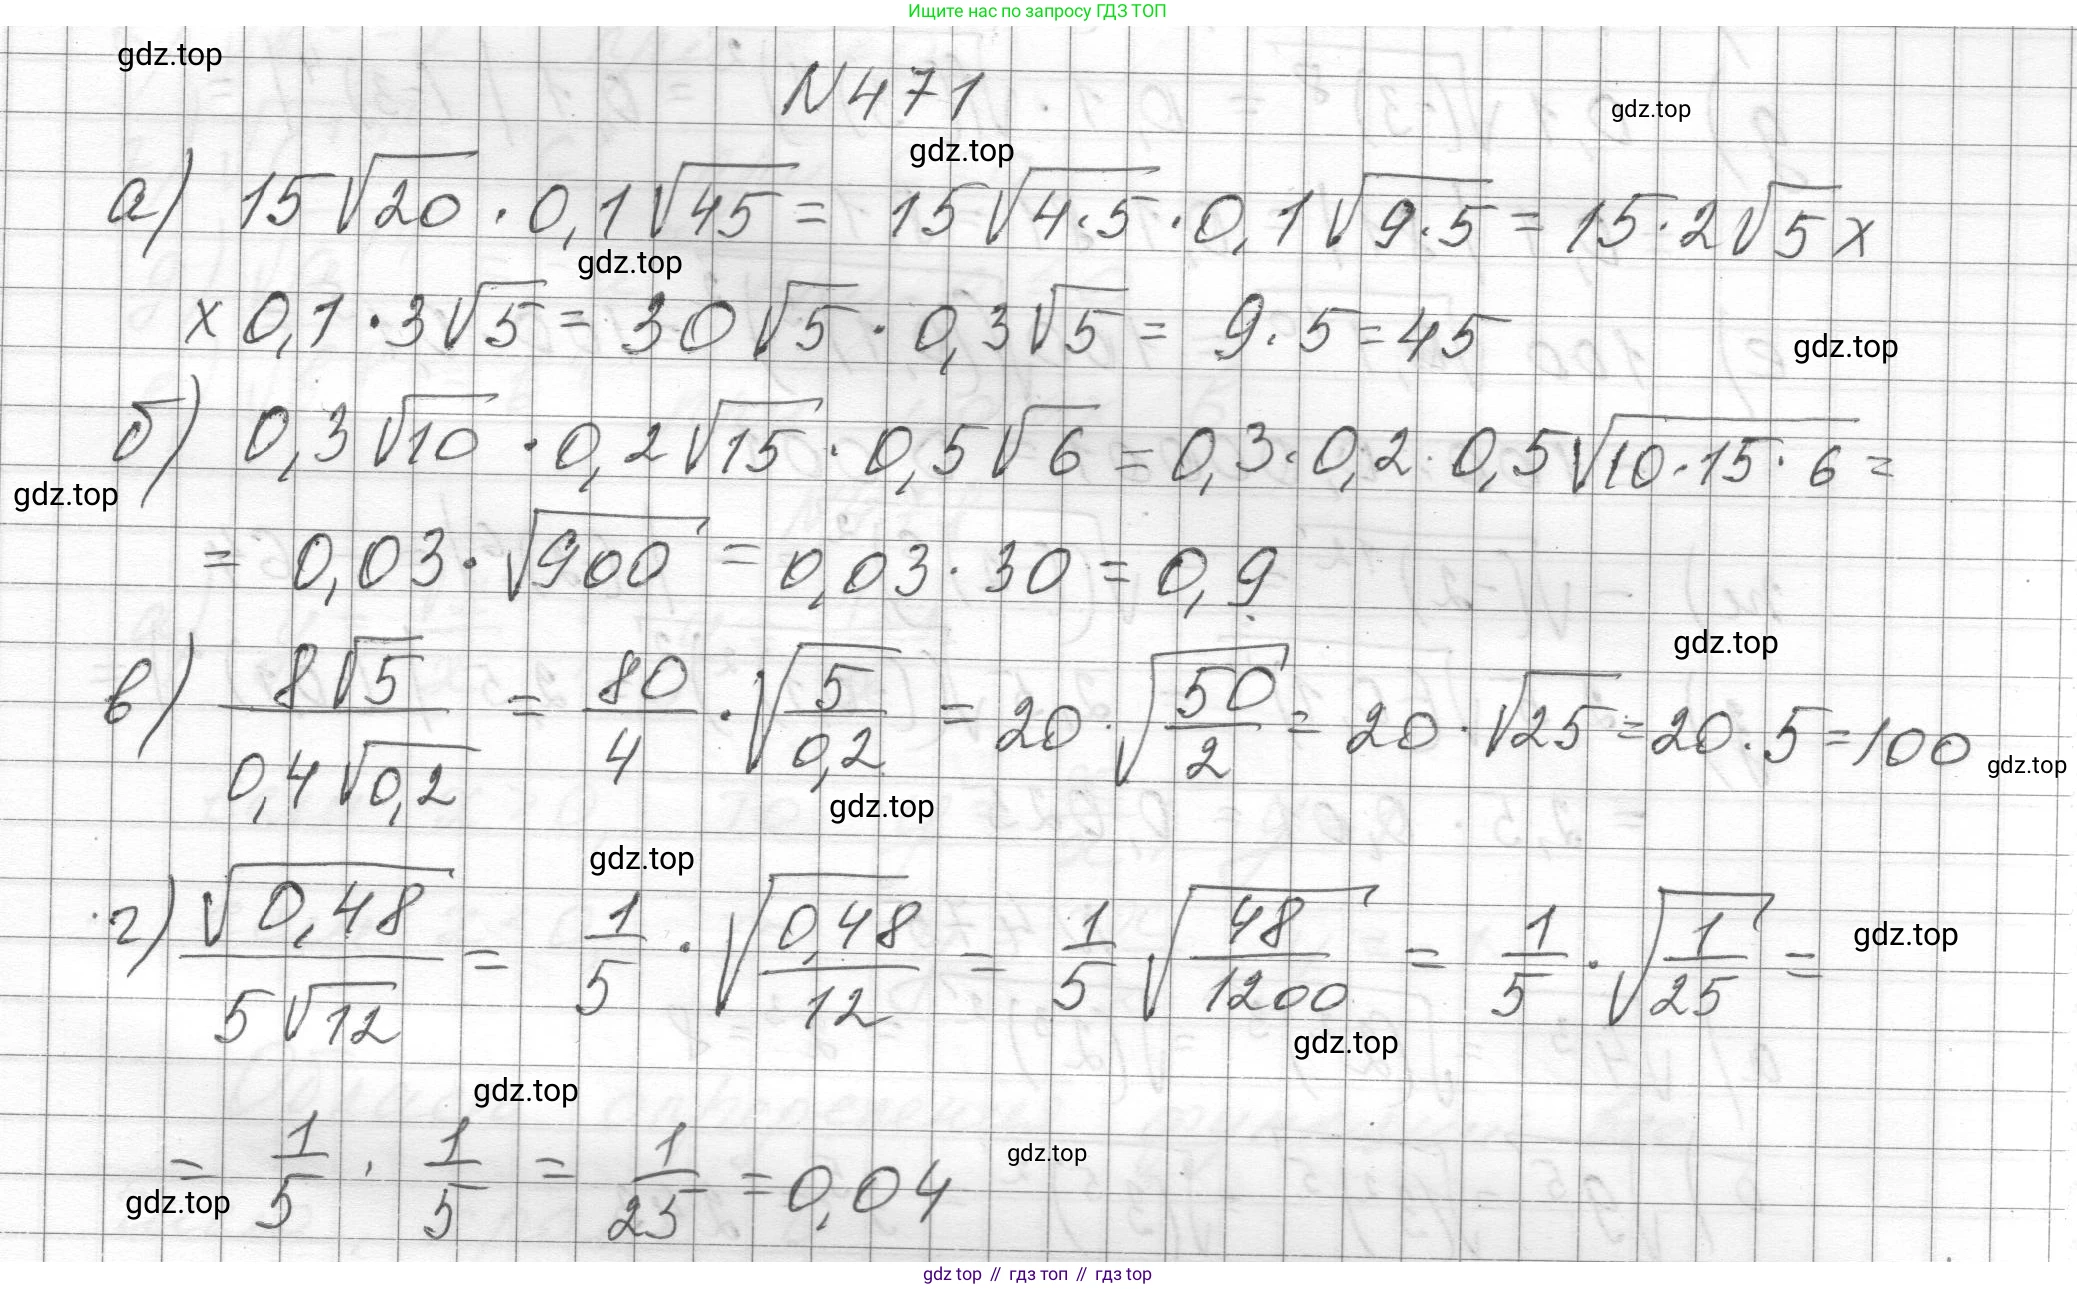 Ищите нас по запросу ГДЗ ТОП
gdz.top
N471
gdz.top
gdz.top
а) 15√20 · 0,1√45 = 15√4·5 · 0,1√9·5 = 15·2√5 x
gdz.top
x 0,1 · 3√5 = 30√5 · 0,3√5 = 9·5 = 45
gdz.top
б) 0,3√10 · 0,2√15 · 0,5√6 = 0,3·0,2·0,5√10·15·6 =
gdz.top
= 0,03·√900 = 0,03·30 = 0,9
gdz.top
в) 8√5/0,4√0,2 = 80/4 · √5/0,2 = 20·√50/2 = 20·√25 = 20·5 = 100
gdz.top
gdz.top
gdz.top
г) √0,48/5√12 = 1/5 · √0,48/12 = 1/5 √48/1200 = 1/5 · √1/25 =
gdz.top
gdz.top
gdz.top
= 1/5 · 1/5 = 1/25 = 0,04
gdz.top
gdz.top
gdz top // гдз топ // гдз top